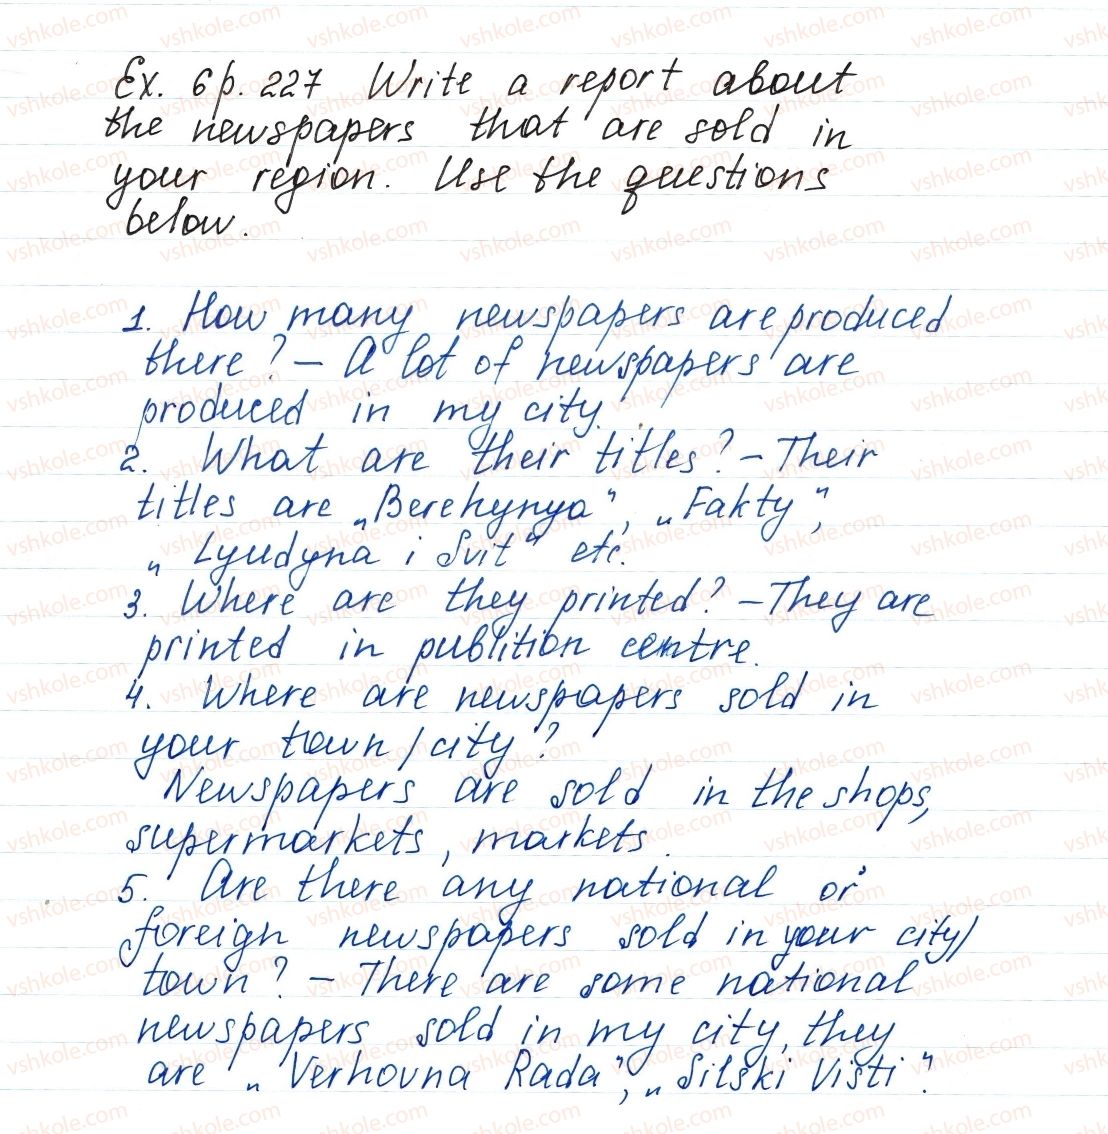 Ex. 6 p. 227 Write a report about
the newspapers that are sold in
your region. Use the questions
below.
1. How many newspapers are produced
there? – A lot of newspapers are
produced in my city.
2. What are their titles? – Their
titles are „Berehynya", „Fakty",
„Lyudyna i Svit" etc.
3. Where are they printed? – They are
printed in publition centre.
4. Where are newspapers sold in
your town / city?
Newspapers are sold in the shops,
supermarkets, markets.
5. Are there any national or
foreign newspapers sold in your city/
town? – There are some national
newspapers sold in my city, they
are „Verhovna Rada", „Silski Visti".